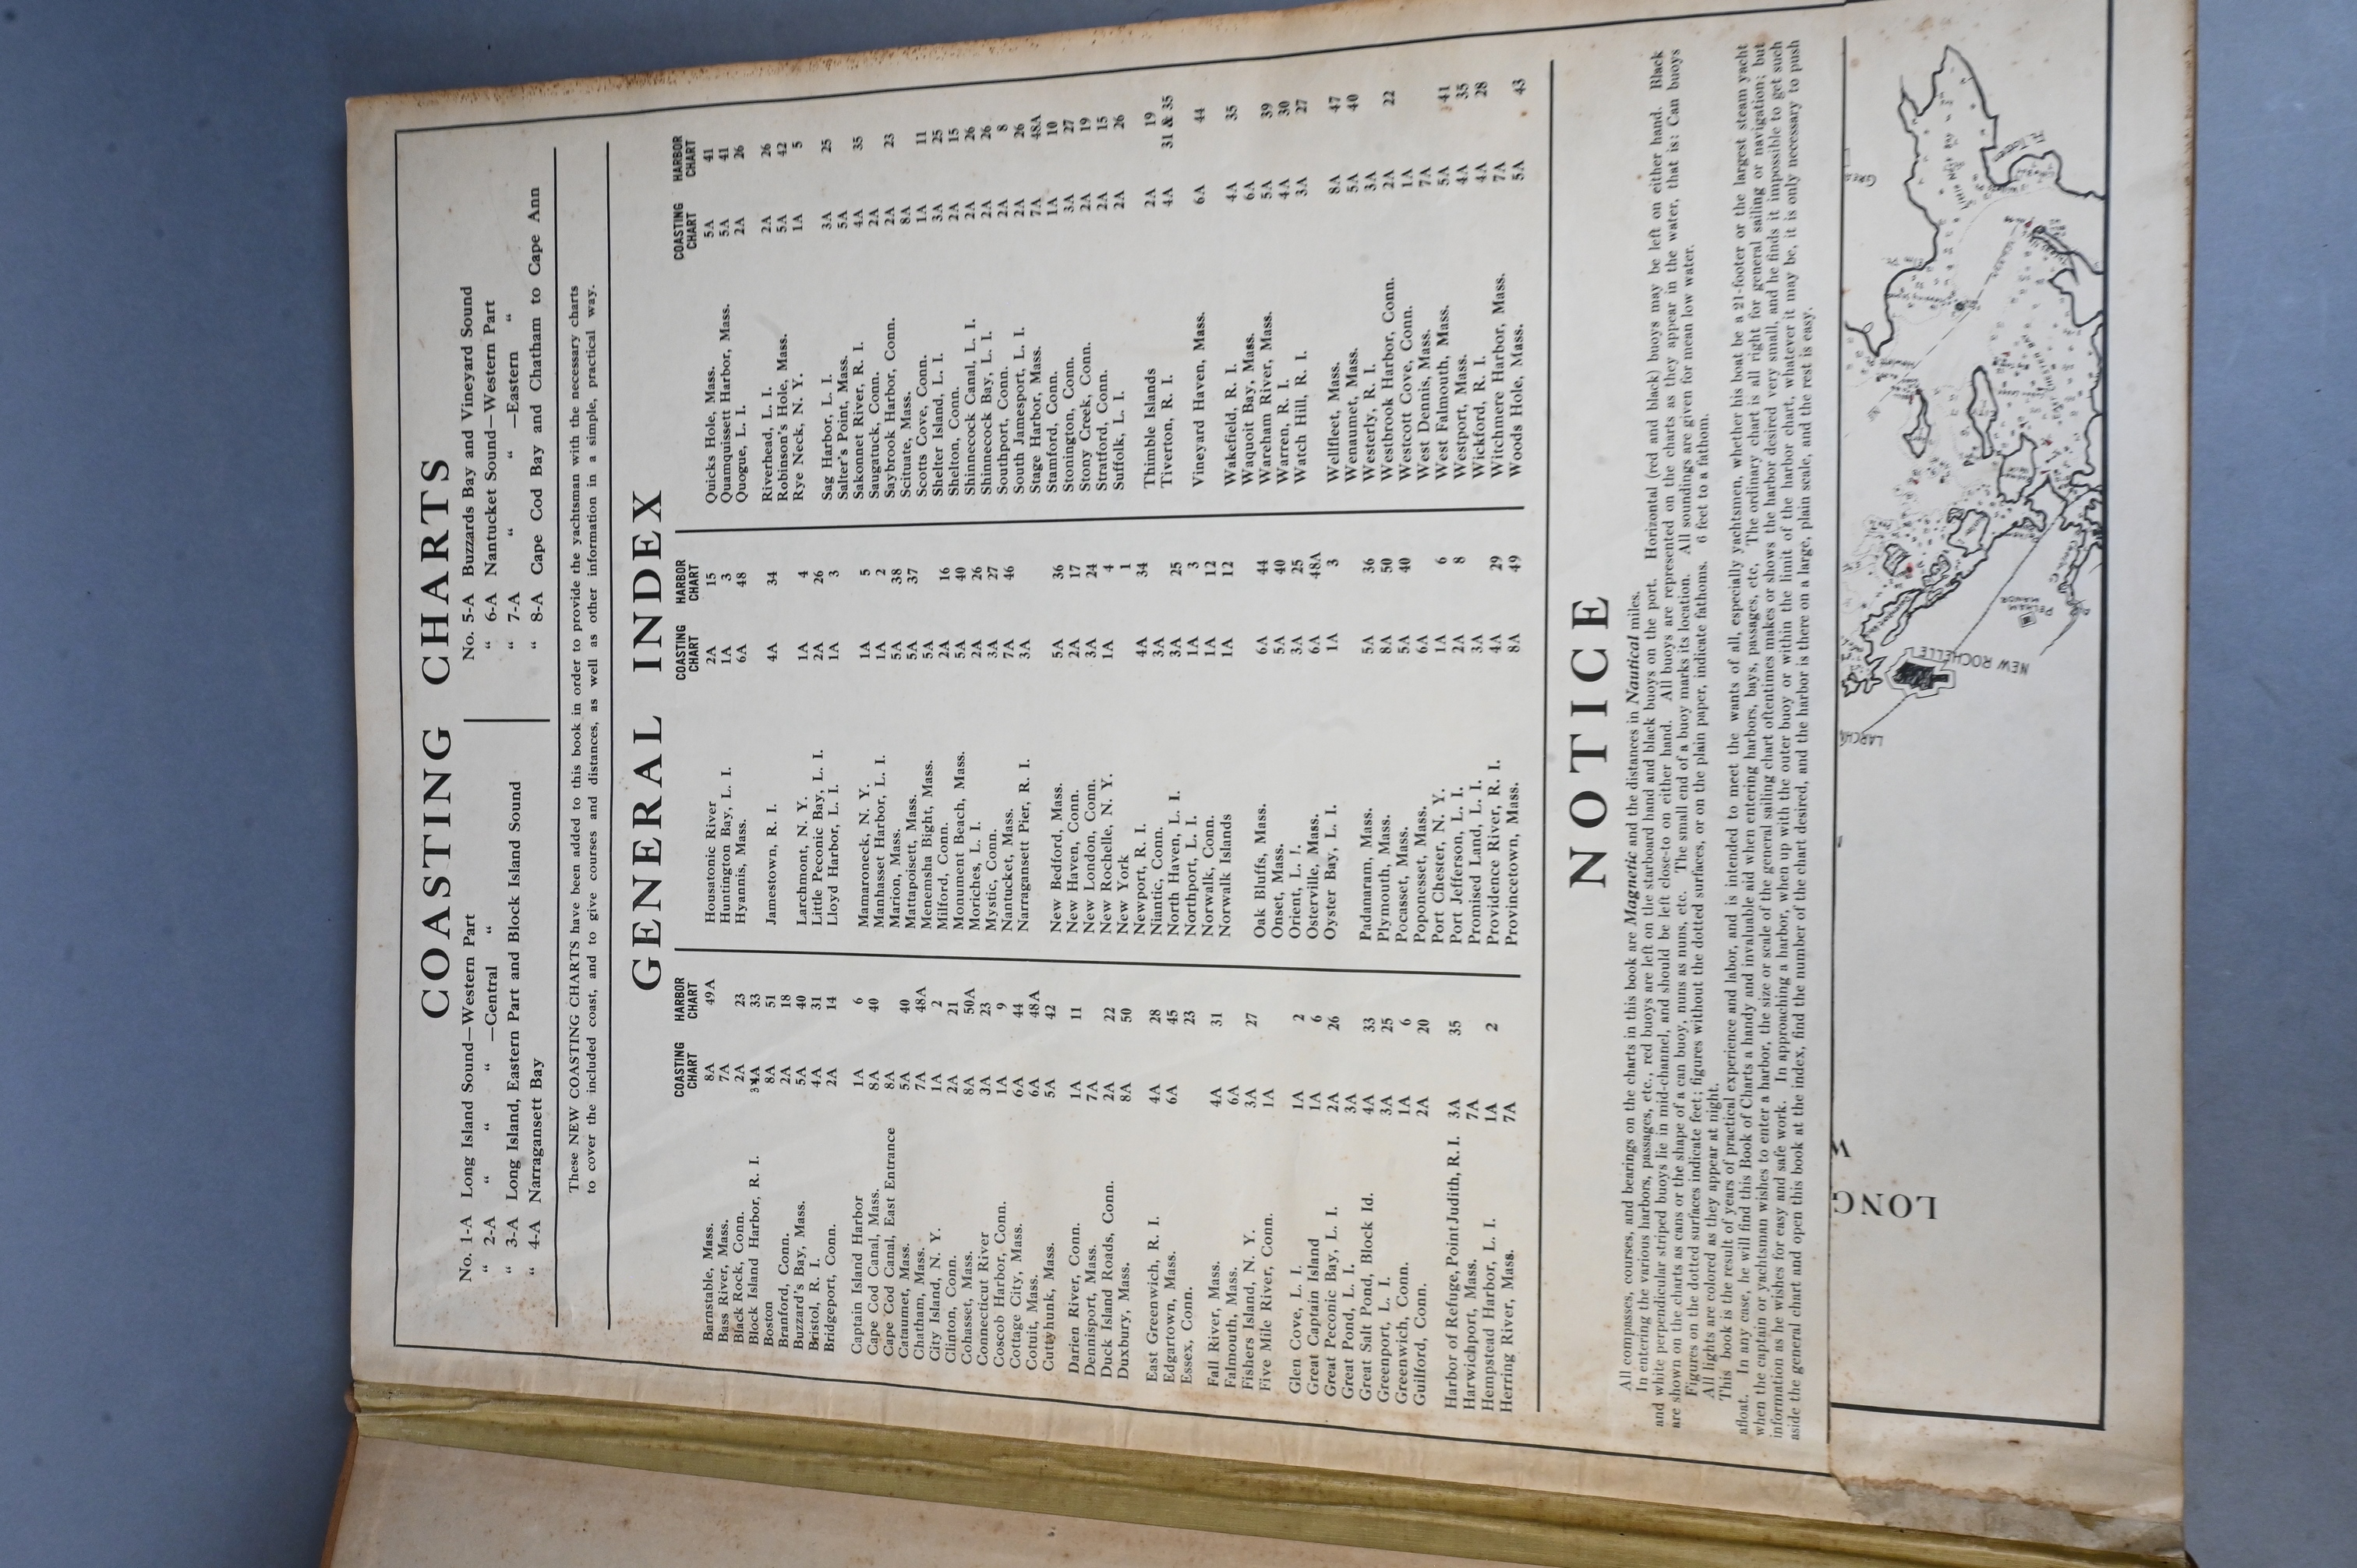 COASTING CHARTS
No. 1-A Long Island Sound—Western Part
“ 2-A “ “ “ —Central “
“ 3-A Long Island, Eastern Part and Block Island Sound
“ 4-A Narragansett Bay
No. 5-A Buzzards Bay and Vineyard Sound
“ 6-A Nantucket Sound—Western Part
“ 7-A “ “ —Eastern “
“ 8-A Cape Cod Bay and Chatham to Cape Ann
These NEW COASTING CHARTS have been added to this book in order to provide the yachtsman with the necessary charts
to cover the included coast, and to give courses and distances, as well as other information in a simple, practical way.
GENERAL INDEX
COASTING CHART HARBOR CHART
Barnstable, Mass. 8A 49A
Bass River, Mass. 7A
Black Rock, Conn. 2A 23
Block Island Harbor, R. I. 3 & 4A 33
Boston 8A 51
Branford, Conn. 2A 18
Buzzard's Bay, Mass. 5A 40
Bristol, R. I. 4A 31
Bridgeport, Conn. 2A 14
Captain Island Harbor 1A 6
Cape Cod Canal, Mass. 8A 40
Cape Cod Canal, East Entrance 8A
Cataumet, Mass. 5A 40
Chatham, Mass. 7A 48A
City Island, N. Y. 1A 2
Clinton, Conn. 2A 21
Cohasset, Mass. 8A 50A
Connecticut River 3A 23
Coscob Harbor, Conn. 1A 9
Cottage City, Mass. 6A 44
Cotuit, Mass. 6A 48A
Cuttyhunk, Mass. 5A 42
Darien River, Conn. 1A 11
Dennisport, Mass. 7A
Duck Island Roads, Conn. 2A 22
Duxbury, Mass. 8A 50
East Greenwich, R. I. 4A 28
Edgartown, Mass. 6A 45
Essex, Conn. 23
Fall River, Mass. 4A 31
Falmouth, Mass. 6A
Fishers Island, N. Y. 3A 27
Five Mile River, Conn. 1A
Glen Cove, L. I. 1A 2
Great Captain Island 1A 6
Great Peconic Bay, L. I. 2A 26
Great Pond, L. I. 3A
Great Salt Pond, Block Id. 4A 33
Greenport, L. I. 3A 25
Greenwich, Conn. 1A 6
Guilford, Conn. 2A 20
Harbor of Refuge, Point Judith, R. I. 3A 35
Harwichport, Mass. 7A
Hempstead Harbor, L. I. 1A 2
Herring River, Mass. 7A
COASTING CHART HARBOR CHART
Housatonic River 2A 15
Huntington Bay, L. I. 1A 3
Hyannis, Mass. 6A 48
Jamestown, R. I. 4A 34
Larchmont, N. Y. 1A 4
Little Peconic Bay, L. I. 2A 26
Lloyd Harbor, L. I. 1A 3
Mamaroneck, N. Y. 1A 5
Manhasset Harbor, L. I. 1A 2
Marion, Mass. 5A 38
Mattapoisett, Mass. 5A 37
Menemsha Bight, Mass. 5A
Milford, Conn. 2A 16
Monument Beach, Mass. 5A 40
Moriches, L. I. 2A 26
Mystic, Conn. 3A 27
Nantucket, Mass. 7A 46
Narragansett Pier, R. I. 3A
New Bedford, Mass. 5A 36
New Haven, Conn. 2A 17
New London, Conn. 3A 24
New Rochelle, N. Y. 1A 4
New York 1
Newport, R. I. 4A 34
Niantic, Conn. 3A
North Haven, L. I. 3A 25
Northport, L. I. 1A 3
Norwalk, Conn. 1A 12
Norwalk Islands 1A 12
Oak Bluffs, Mass. 6A 44
Onset, Mass. 5A 40
Orient, L. I. 3A 25
Osterville, Mass. 6A 48A
Oyster Bay, L. I. 1A 3
Padanaram, Mass. 5A 36
Plymouth, Mass. 8A 50
Pocasset, Mass. 5A 40
Poponesset, Mass. 6A
Port Chester, N. Y. 1A 6
Port Jefferson, L. I. 2A 8
Promised Land, L. I. 3A
Providence River, R. I. 4A 29
Provincetown, Mass. 8A 49
COASTING CHART HARBOR CHART
Quicks Hole, Mass. 5A 41
Quamquissett Harbor, Mass. 5A 41
Quogue, L. I. 2A 26
Riverhead, L. I. 2A 26
Robinson's Hole, Mass. 5A 42
Rye Neck, N. Y. 1A 5
Sag Harbor, L. I. 3A 25
Salter's Point, Mass. 5A
Sakonnet River, R. I. 4A 35
Saugatuck, Conn. 2A
Saybrook Harbor, Conn. 2A 23
Scituate, Mass. 8A
Scotts Cove, Conn. 1A 11
Shelter Island, L. I. 3A 25
Shelton, Conn. 2A 15
Shinnecock Canal, L. I. 2A 26
Shinnecock Bay, L. I. 2A 26
Southport, Conn. 2A 8
South Jamesport, L. I. 2A 26
Stage Harbor, Mass. 7A 48A
Stamford, Conn. 1A 10
Stonington, Conn. 3A 27
Stony Creek, Conn. 2A 19
Stratford, Conn. 2A 15
Suffolk, L. I. 2A 26
Thimble Islands 2A 19
Tiverton, R. I. 4A 31 & 35
Vineyard Haven, Mass. 6A 44
Wakefield, R. I. 4A 35
Waquoit Bay, Mass. 6A
Wareham River, Mass. 5A 39
Warren, R. I. 4A 30
Watch Hill, R. I. 3A 27
Wellfleet, Mass. 8A 47
Wenaumet, Mass. 5A 40
Westerly, R. I. 3A
Westbrook Harbor, Conn. 2A 22
Westcott Cove, Conn. 1A
West Dennis, Mass. 7A
West Falmouth, Mass. 5A 41
Westport, Mass. 4A 35
Wickford, R. I. 4A 28
Witchmere Harbor, Mass. 7A
Woods Hole, Mass. 5A 43
NOTICE
All compasses, courses, and bearings on the charts in this book are Magnetic and the distances in Nautical miles.
In entering the various harbors, passages, etc., red buoys are left on the starboard hand and black buoys on the port. Horizontal (red and black) buoys may be left on either hand. Black
and white perpendicular striped buoys lie in mid-channel, and should be left close-to on either hand. All buoys are represented on the charts as they appear in the water, that is: Can buoys
are shown on the charts as cans or the shape of a can buoy, nuns as nuns, etc. The small end of a buoy marks its location. All soundings are given for mean low water.
Figures on the dotted surfaces indicate feet; figures without the dotted surfaces, or on the plain paper, indicate fathoms. 6 feet to a fathom.
All lights are colored as they appear at night.
This book is the result of years of practical experience and labor, and is intended to meet the wants of all, especially yachtsmen, whether his boat be a 21-footer or the largest steam yacht
afloat. In any ease, he will find this Book of Charts a handy and invaluable aid when entering harbors, bays, passages, etc. The ordinary chart is all right for general sailing or navigation; but
when the captain or yachtsman wishes to enter a harbor, the size or scale of the general sailing chart oftentimes makes or shows the harbor desired very small, and he finds it impossible to get such
information as he wishes for easy and safe work. In approaching a harbor, when up with the outer buoy or within the limit of the harbor chart, whatever it may be, it is only necessary to push
aside the general chart and open this book at the index, find the number of the chart desired, and the harbor is there on a large, plain scale, and the rest is easy.
LONG
W
LARCH
NEW ROCHELLE
PELHAM MANOR